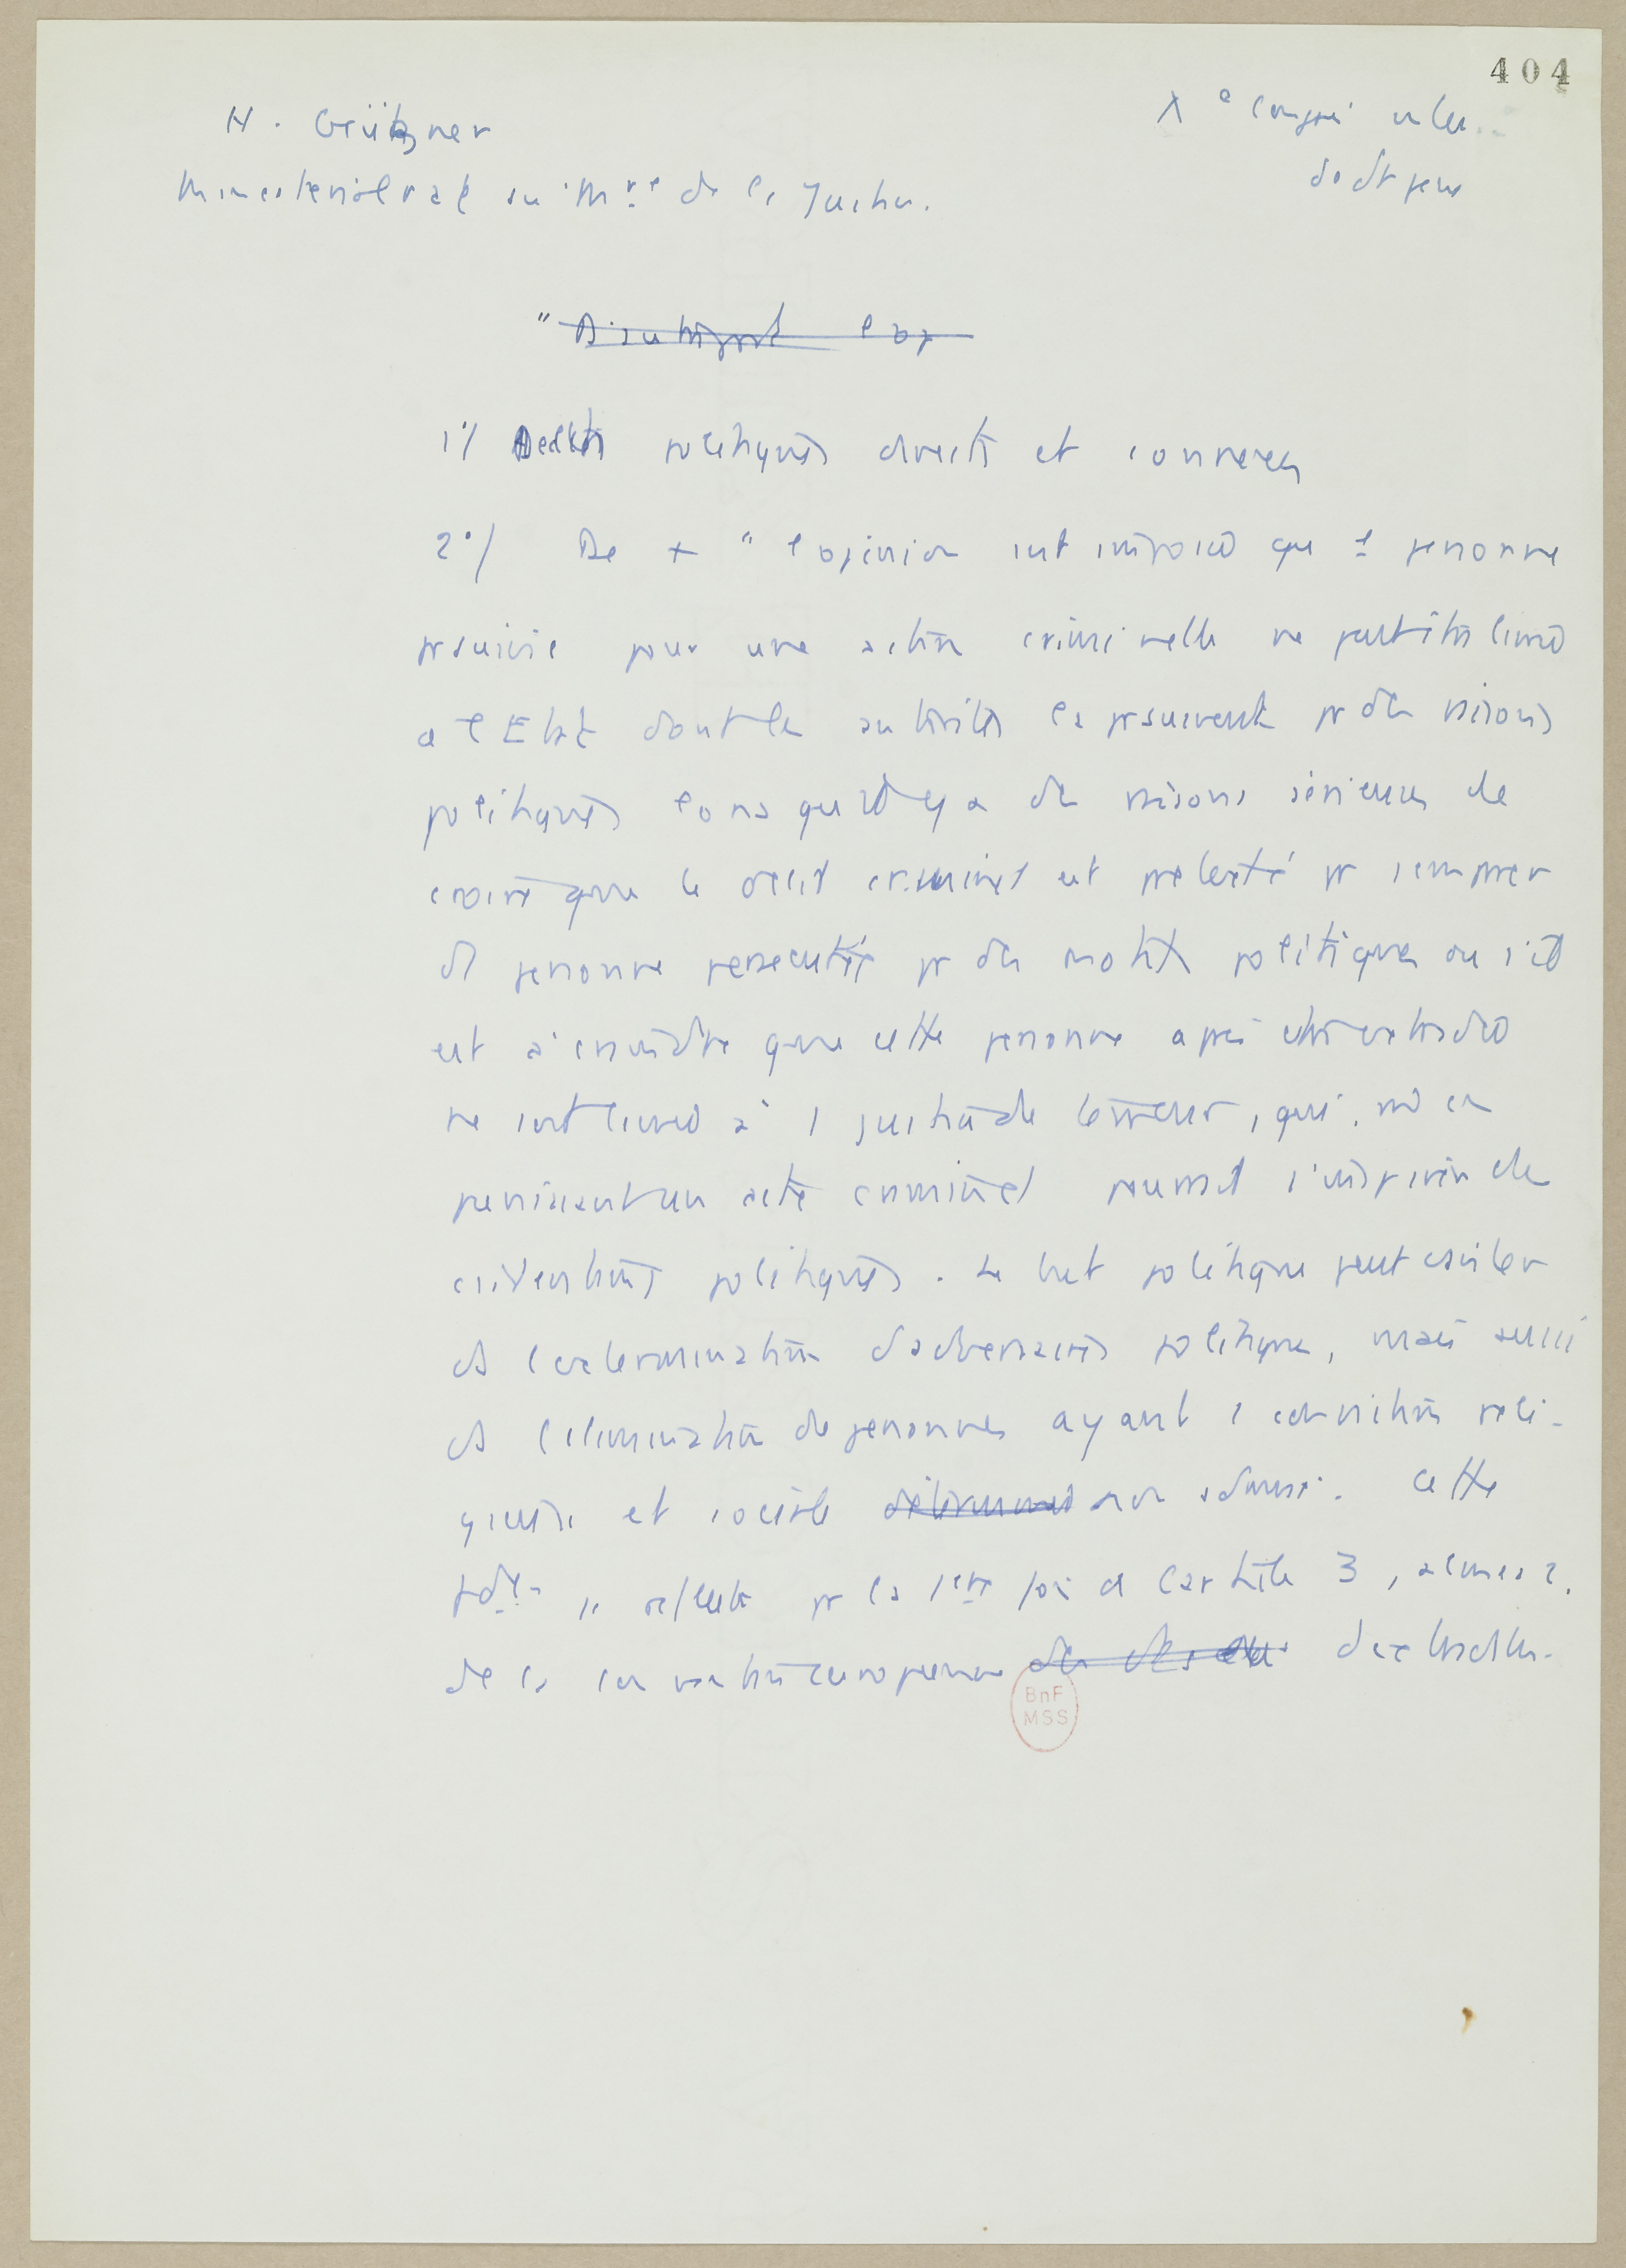 404
H. Grützner
Xe Congrès inter.
de dt penal
Ministerialrat au Mre de la Justice.
"Dautrepart l'op
1°/ Délits politiques directs et connexes
2°/ De + " l'opinion s'est imposée qu' 1 personne
psuivie pour une action criminelle ne peut être livrée
a l'Etat dont les autorités la psuivent pr des raisons
politiques lorsqu'il y a des raisons sérieuses de
croire que le délit criminel est prétexté pr s'emparer
d personne persécutée pr des motifs politiques ou s'il
est à craindre que cette personne après extradition
ne soit livrée à 1 justice de terreur, qui,
punissant un acte criminel pourrait s'inspirer de
considérations politiques. Le but politique peut exister
ds l'extermination d'adversaires politiques, mais aussi
ds l'élimination de personnes ayant 1 conviction reli-
gieuse et sociale déterminée non admise. Cette
est reflétée pr la 1ère fois ds l'article 3, alinea 2,
de la convention européenne d'extradition.
BnF
MSS